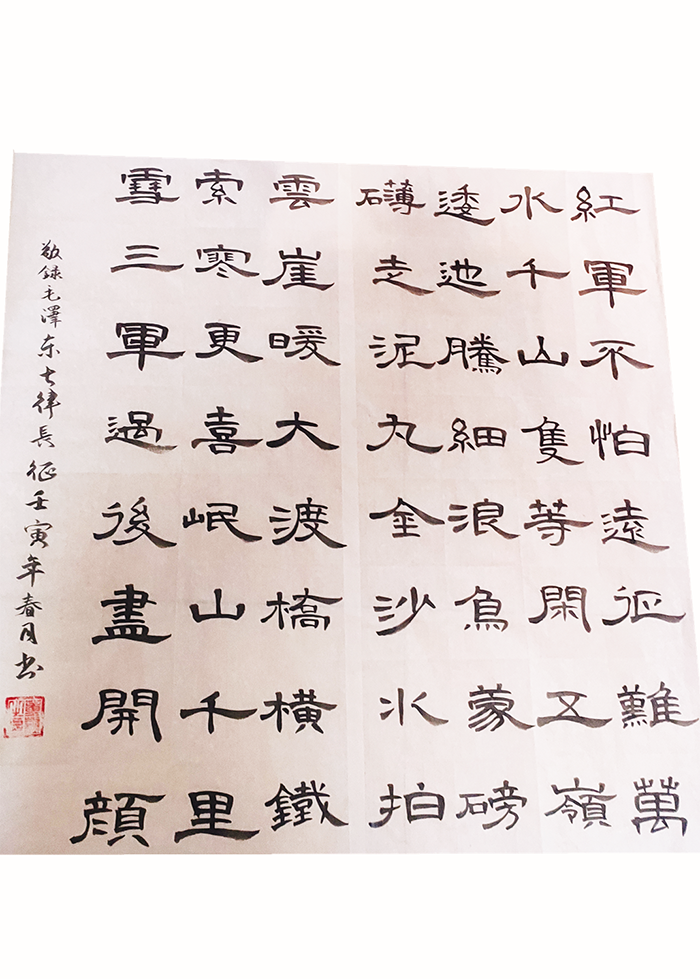 紅軍不怕遠征難萬
水千山隻等閑五嶺
逶迤騰細浪烏蒙磅
礴走泥丸金沙水拍
雲崖暖大渡橋橫鐵
索寒更喜岷山千里
雪三軍過後盡開顏
敬録毛澤东七律長征壬寅年春月书